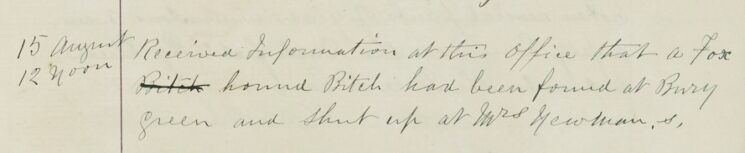 15 August
12 Noon
Received Information at this Office that a Fox
Bitch hound Bitch had been found at Bury
Green and Shut up at Mrs Newman,s,